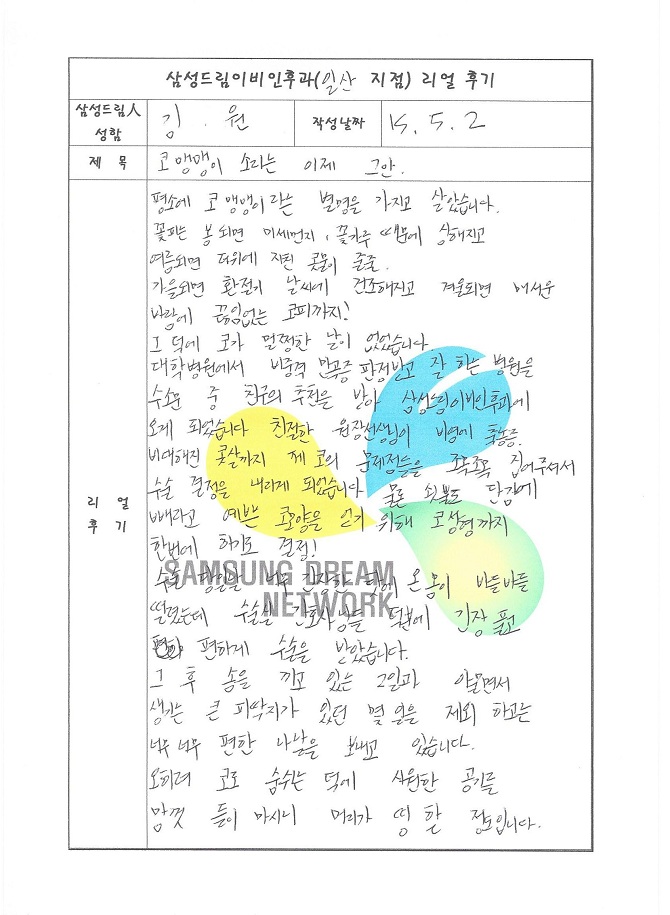 삼성드림이비인후과(일산 지점) 리얼 후기
삼성드림人 성함 김 . 원 작성날짜 15. 5. 2
제 목 코맹맹이 소리는 이제 그만.
리얼 후기
평소에 코맹맹이라는 별명을 가지고 살았습니다.
꽃피는 봄 되면 미세먼지, 꽃가루 때문에 상해지고
여름되면 더위에 지친 콧물이 줄줄.
가을되면 환절기 날씨에 건조해지고 겨울되면 매서운
바람에 끊임없는 코피까지!
그 덕에 코가 멀쩡한 날이 없었습니다.
대학병원에서 비중격 만곡증 판정받고 잘 하는 병원을
수소문 중 친구의 추천을 받아 삼성드림이비인후과에
오게 되었습니다 친절한 원장선생님이 비염에 축농증.
비대해진 콧살까지 제 코의 문제점들을 조목조목 집어주셔서
수술 결정을 내리게 되었습니다 물론 쇠뿔도 단김에
빼라고 예쁜 코모양을 얻기 위해 코성형까지
한번에 하기로 결정!
수술 당일날 너무 긴장한 탓에 온몸이 바들바들
떨렸는데 수술실 간호사님들 덕분에 긴장 풀고
편하게 수술을 받았습니다.
그 후 솜을 끼고 있는 2일과 아물면서
생기는 큰 피딱지가 있던 몇 일을 제외 하고는
너무 너무 편한 나날을 보내고 있습니다.
오히려 코로 숨쉬는 덕에 시원한 공기를
맘껏 들이 마시니 머리가 띵 할 정도입니다.
SAMSUNG DREAM
NETWORK